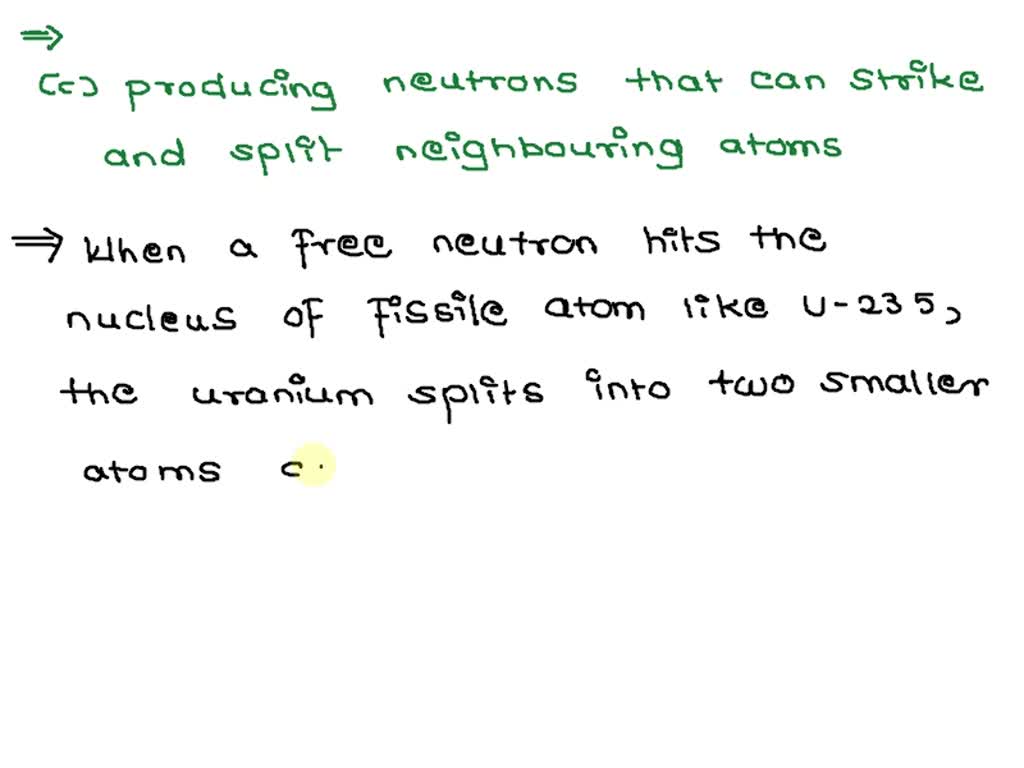 ⇒
(c) producing neutrons that can strike
and split neighbouring atoms
⇒ When a free neutron hits the
nucleus of fissile atom like U-235,
the uranium splits into two smaller
atoms